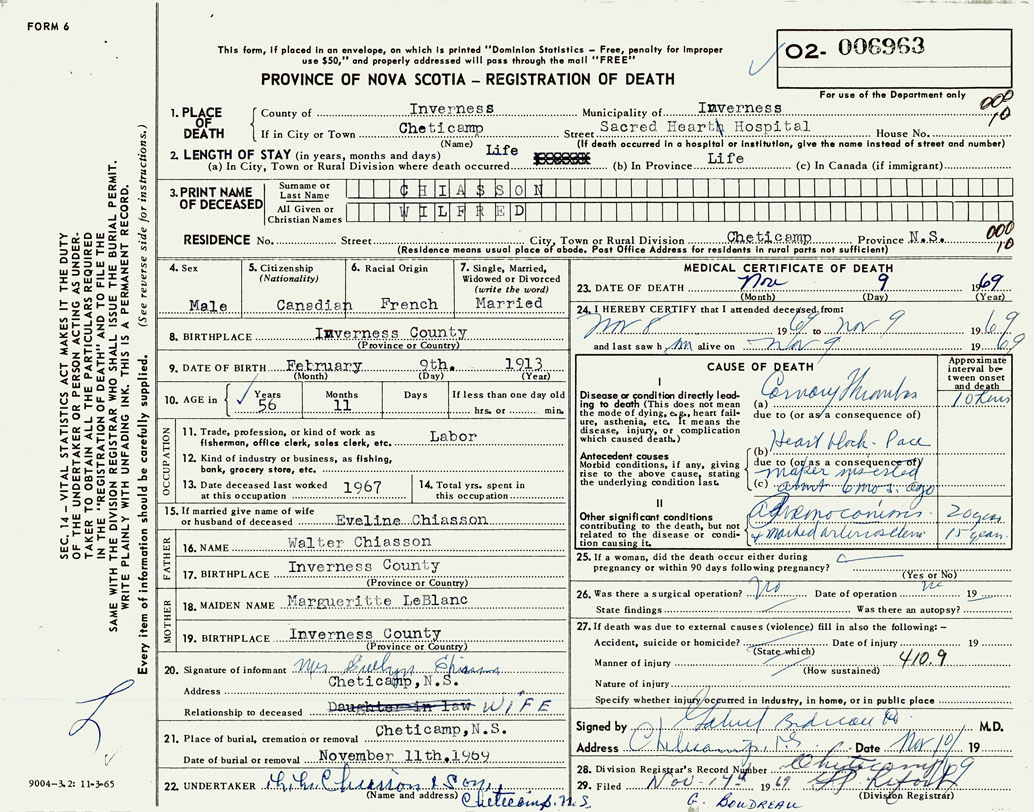 FORM 6
This form, if placed in an envelope, on which is printed "Dominion Statistics – Free, penalty for improper
use $50," and properly addressed will pass through the mail "FREE"
O2- 006963
PROVINCE OF NOVA SCOTIA – REGISTRATION OF DEATH
For use of the Department only
000
10
1. PLACE OF DEATH
County of Inverness Municipality of Inverness
If in City or Town Cheticamp Street Sacred Heart Hospital House No.
(Name) (If death occurred in a hospital or institution, give the name instead of street and number)
2. LENGTH OF STAY (in years, months and days)
(a) In City, Town or Rural Division where death occurred Life (b) In Province Life (c) In Canada (if immigrant)
3. PRINT NAME OF DECEASED
Surname or Last Name CHIASSON
All Given or Christian Names WILFRED
000
10
RESIDENCE No. Street City, Town or Rural Division Cheticamp Province N.S.
(Residence means usual place of abode. Post Office Address for residents in rural parts not sufficient)
4. Sex
Male
5. Citizenship
(Nationality)
Canadian
6. Racial Origin
French
7. Single, Married, Widowed or Divorced
(write the word)
Married
8. BIRTHPLACE Inverness County
(Province or Country)
9. DATE OF BIRTH February 9th. 1913
(Month) (Day) (Year)
10. AGE in Years Months Days If less than one day old
56 11 hrs. or min.
OCCUPATION
11. Trade, profession, or kind of work as fisherman, office clerk, sales clerk, etc. Labor
12. Kind of industry or business, as fishing, bank, grocery store, etc.
13. Date deceased last worked at this occupation 1967
14. Total yrs. spent in this occupation
15. If married give name of wife or husband of deceased Eveline Chiasson
FATHER
16. NAME Walter Chiasson
17. BIRTHPLACE Inverness County
(Province or Country)
MOTHER
18. MAIDEN NAME Margueritte LeBlanc
19. BIRTHPLACE Inverness County
(Province or Country)
20. Signature of informant Mrs Chiasson
Address Cheticamp, N.S.
Relationship to deceased Daughter in law WIFE
21. Place of burial, cremation or removal Cheticamp, N.S.
Date of burial or removal November 11th, 1969
22. UNDERTAKER Chiasson & Son
(Name and address) Cheticamp. N.S
MEDICAL CERTIFICATE OF DEATH
23. DATE OF DEATH Nov 9 1969
(Month) (Day) (Year)
24. I HEREBY CERTIFY that I attended deceased from:
Nov 8 1969 to Nov 9 1969
and last saw h im alive on Nov 9 1969
CAUSE OF DEATH
Approximate interval between onset and death
I
Disease or condition directly leading to death (This does not mean the mode of dying, e.g., heart failure, asthenia, etc. It means the disease, injury, or complication which caused death.)
(a) Coronary Thrombs
due to (or as a consequence of)
Antecedent causes
Morbid conditions, if any, giving rise to the above cause, stating the underlying condition last.
(b) Heart block - Pace
due to (or as a consequence of)
maker inserted
(c) about 6 mos. ago
II
Other significant conditions contributing to the death, but not related to the disease or condition causing it.
20 years
& marked arteriosclerosis 15 years
25. If a woman, did the death occur either during pregnancy or within 90 days following pregnancy?
(Yes or No)
26. Was there a surgical operation? No Date of operation 19
State findings Was there an autopsy?
27. If death was due to external causes (violence) fill in also the following: –
Accident, suicide or homicide? Date of injury 19
(State which)
Manner of injury 410.9
(How sustained)
Nature of injury
Specify whether injury occurred in industry, in home, or in public place
Signed by Gabriel Boudreau M.D.
Address Cheticamp, NS Date Nov 10/ 19
28. Division Registrar's Record Number
29. Filed Nov-17th 1969
(Division Registrar)
G. BOUDREAU
SEC. 14 – VITAL STATISTICS ACT MAKES IT THE DUTY
OF THE UNDERTAKER OR PERSON ACTING AS UNDER-
TAKER TO OBTAIN ALL THE PARTICULARS REQUIRED
IN THE "REGISTRATION OF DEATH" AND TO FILE THE
SAME WITH THE DIVISION REGISTRAR WHO SHALL ISSUE THE BURIAL PERMIT.
WRITE PLAINLY WITH UNFADING INK. THIS IS A PERMANENT RECORD.
Every item of information should be carefully supplied. (See reverse side for instructions.)
9004-3.2: 11-3-65